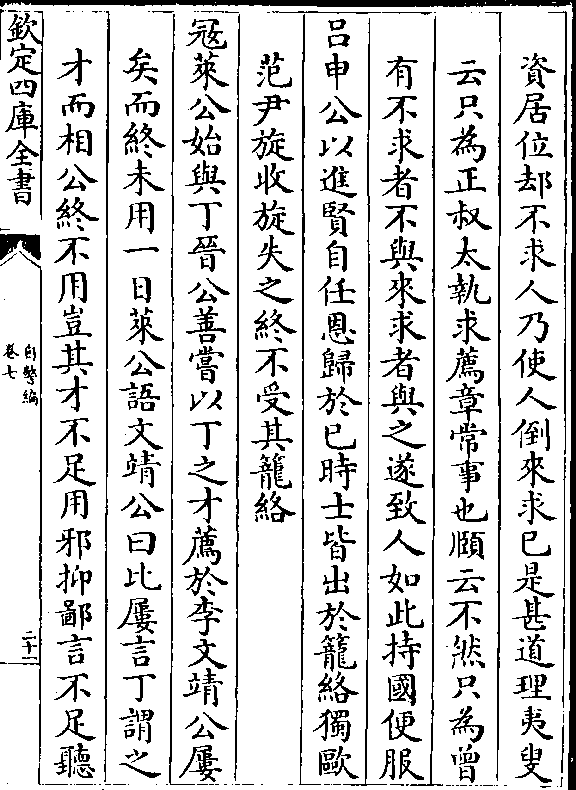 資居位却不求人乃使人倒來求已是甚道理夷叟
云只為正叔太執求薦章常事也頤云不然只為曽
有不求者不與來求者與之遂致人如此持國便服
吕申公以進賢自任恩歸於已時士皆出於籠絡獨歐
范尹旋收旋失之終不受其籠絡
冦萊公始與丁晉公善嘗以丁之才薦於李文靖公屢
矣而終未用一日萊公語文靖公曰比屢言丁謂之
才而相公終不用豈其才不足用邪抑鄙言不足聽
欽定四庫全書
自警編
卷七
二十一